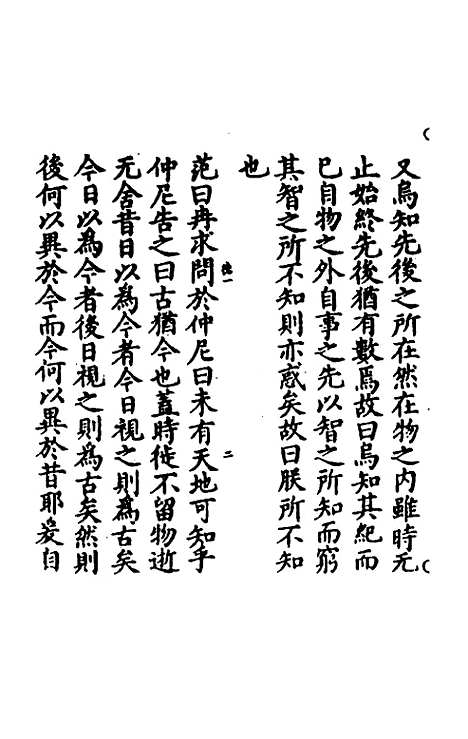 又烏知先後之所在然在物之內雖時无
止始終先後猶有數焉故曰烏知其紀而
已自物之外自事之先以智之所知而窮
其智之所不知則亦惑矣故曰朕所不知
也
范曰冉求問於仲尼曰未有天地可知乎
仲尼告之曰古猶今也蓋時徙不留物逝
无舍昔日以為今者今日視之則為古矣
今日以為今者後日視之則為古矣然則
後何以異於今而今何以異於昔耶爰自
二